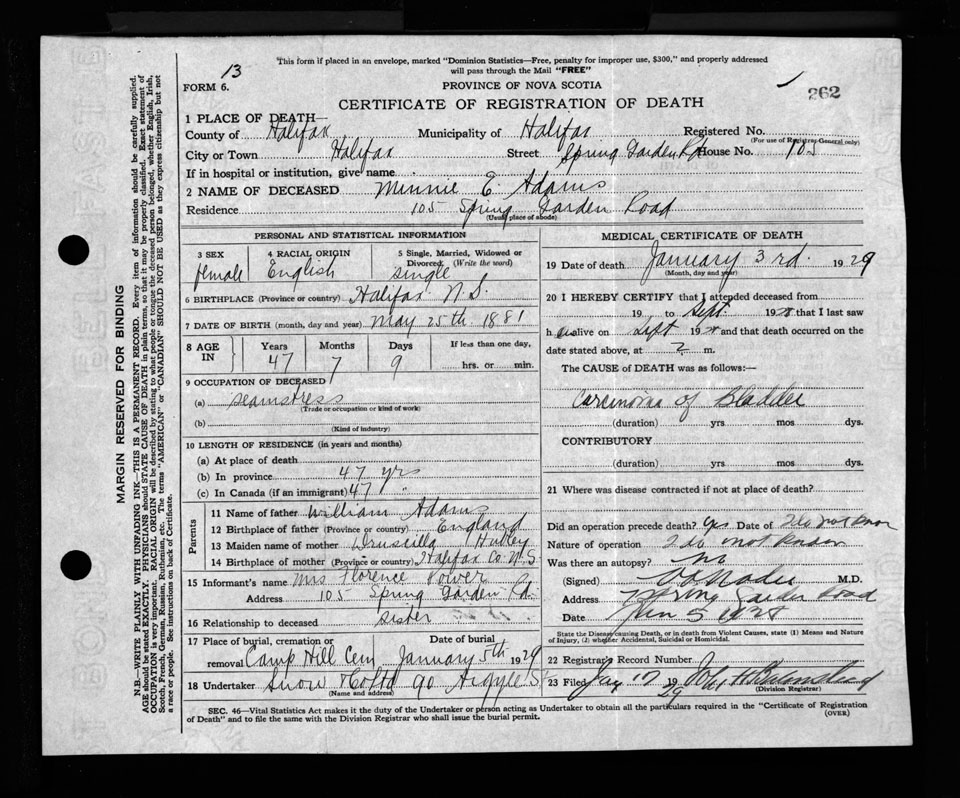 This form if placed in an envelope, marked "Dominion Statistics—Free, penalty for improper use, $300," and properly addressed
will pass through the Mail "FREE"
13
FORM 6.
PROVINCE OF NOVA SCOTIA
262
CERTIFICATE OF REGISTRATION OF DEATH
1 PLACE OF DEATH—
County of Halifax Municipality of Halifax Registered No.
(For use of Registrar General only)
City or Town Halifax Street Spring Garden Rd House No. 105
If in hospital or institution, give name
2 NAME OF DECEASED Minnie E. Adams
Residence 105 Spring Garden Road
(Usual place of abode)
PERSONAL AND STATISTICAL INFORMATION
3 SEX 4 RACIAL ORIGIN 5 Single, Married, Widowed or
Divorced (Write the word)
female English single
6 BIRTHPLACE (Province or country) Halifax N.S.
7 DATE OF BIRTH (month, day and year) May 25th 1881
8 AGE IN Years Months Days If less than one day,
47 7 9 hrs. or min.
9 OCCUPATION OF DECEASED
(a) seamstress
(Trade or occupation or kind of work)
(b)
(Kind of industry)
10 LENGTH OF RESIDENCE (in years and months)
(a) At place of death
(b) In province 47 yrs
(c) In Canada (if an immigrant) 47 "
Parents
11 Name of father William Adams
12 Birthplace of father (Province or country) England
13 Maiden name of mother Druscilla
14 Birthplace of mother (Province or country) Halifax Co. N.S
15 Informant's name Mrs Florence Power
Address 105 Spring Garden Rd.
16 Relationship to deceased sister
17 Place of burial, cremation or Date of burial
removal Camp Hill Cem January 5th 1929
18 Undertaker Snow & Co Ltd 90 Argyle St
(Name and address)
MEDICAL CERTIFICATE OF DEATH
19 Date of death January 3rd. 1929
(Month, day and year)
20 I HEREBY CERTIFY that I attended deceased from
19 to Sept. 1928 that I last saw
her alive on Sept 1928 and that death occurred on the
date stated above, at 2 m.
The CAUSE of DEATH was as follows:—
Carcinoma of Bladder
(duration) yrs mos dys.
CONTRIBUTORY
(duration) yrs mos dys.
21 Where was disease contracted if not at place of death?
Did an operation precede death? yes Date of I do not know
Nature of operation I do not know
Was there an autopsy? no
(Signed) M.D.
Address Spring Garden Road
Date Jan 5 1928
State the Disease causing Death, or in death from Violent Causes, state (1) Means and Nature
of Injury, (2) whether Accidental, Suicidal or Homicidal.
22 Registrar's Record Number
23 Filed Jan 17 1929
(Division Registrar)
SEC. 46—Vital Statistics Act makes it the duty of the Undertaker or person acting as Undertaker to obtain all the particulars required in the "Certificate of Registration
of Death" and to file the same with the Division Registrar who shall issue the burial permit.
(OVER)
MARGIN RESERVED FOR BINDING
N.B.—WRITE PLAINLY WITH UNFADING INK—THIS IS A PERMANENT RECORD. Every item of information should be carefully supplied.
AGE should be stated EXACTLY. PHYSICIANS should STATE CAUSE OF DEATH in plain terms, so that it may be properly classified. Exact statement of
OCCUPATION is very important. RACIAL ORIGIN will be described by stating to what people or tongue the deceased person belonged, whether English, Irish,
Scotch, French, German, Russian, Ruthenian, etc. The terms "AMERICAN" or "CANADIAN" SHOULD NOT BE USED as they express citizenship but not
a race or people. See instructions on back of Certificate.